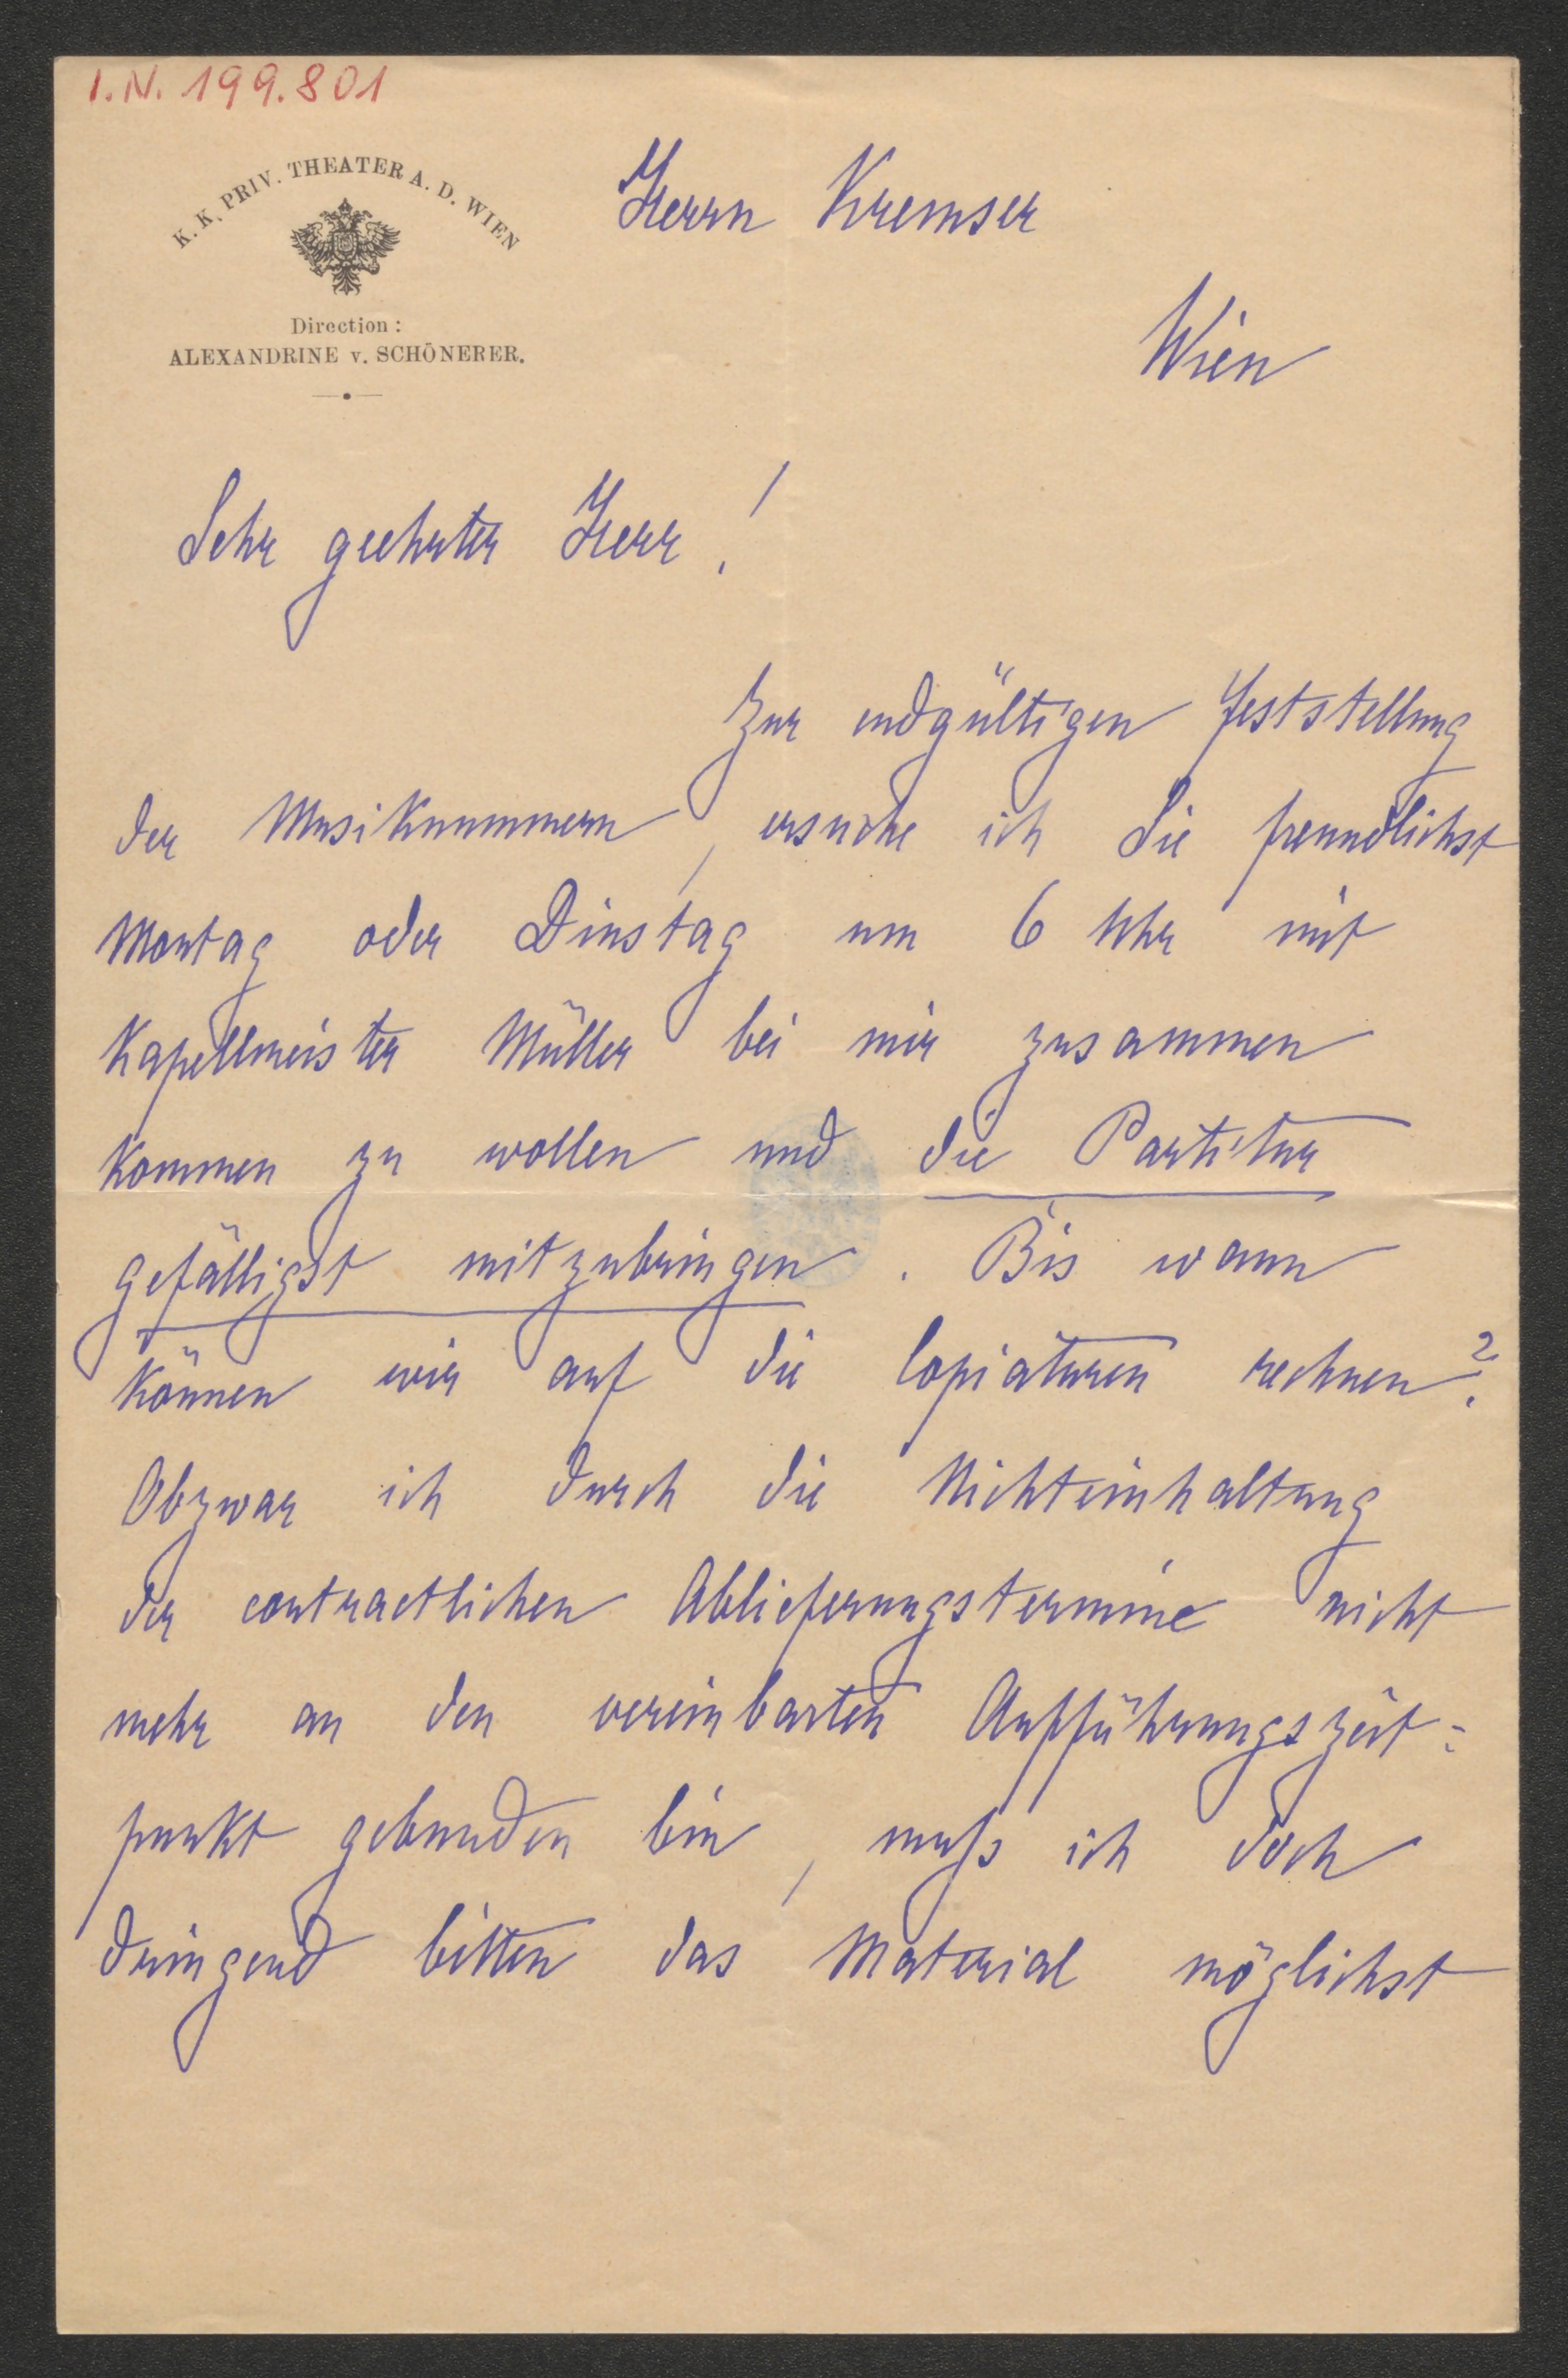 I.N. 199.801
K. K. PRIV. THEATER A. D. WIEN
Direction:
ALEXANDRINE v. SCHÖNERER.
Herrn Kremser
Wien
Sehr geehrter Herr!
Zur endgültigen Feststellung
der Musiknummern, ersuche ich Sie freundlichst
Montag oder Dinstag um 6 Uhr mit
Kapellmeister Müller bei mir zusammen
kommen zu wollen und die Partitur
gefälligst mitzubringen. Bis wann
können wir auf die Copiaturen rechnen?
Obzwar ich durch die Nichteinhaltung
der contractlichen Ablieferungstermine nicht
mehr an den vereinbarten Aufführungszeit=
punkt gebunden bin, muß ich doch
dringend bitten das Material möglichst